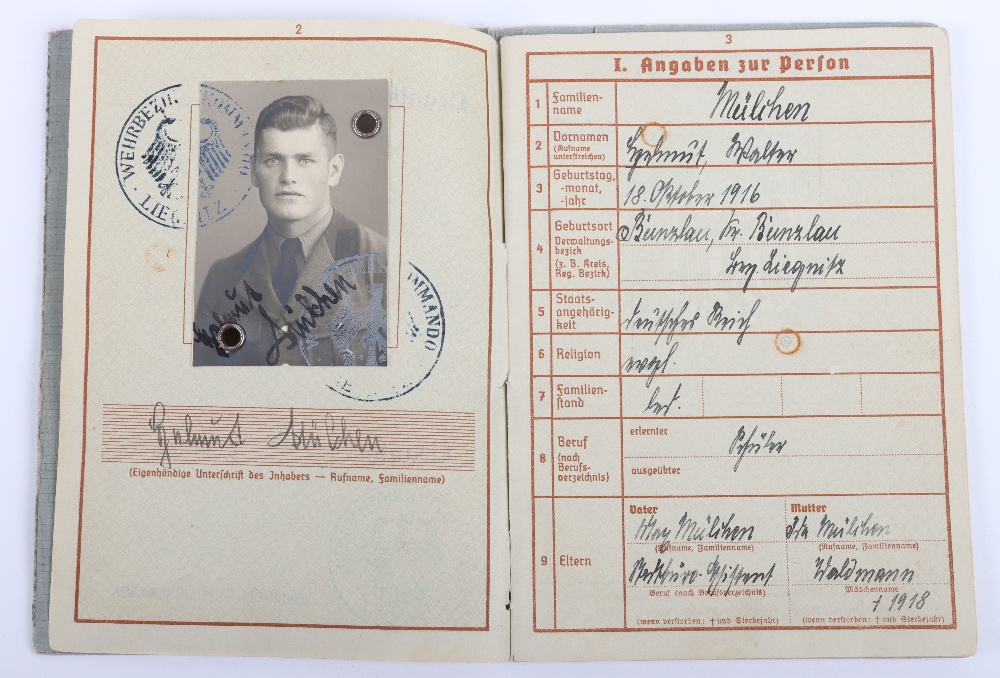 2
WEHRBEZIRKSKOMMANDO
LIEGNITZ
Helmut
MMANDO
Helmut
(Eigenhändige Unterschrift des Inhabers — Rufname, Familienname)
3
I. Angaben zur Person
1 Familien-
name
2 Vornamen
(Rufname
unterstreichen)
Helmut, Walter
3 Geburtstag,
-monat,
-jahr
18. Oktober 1916
4 Geburtsort
Verwaltungs-
bezirk
(z. B. Kreis,
Reg. Bezirk)
Bunzlau, Kr. Bunzlau
Bez. Liegnitz
5 Staats-
angehörig-
keit
deutsches Reich
6 Religion
evgl.
7 Familien-
stand
led.
8 Beruf
(nach
Berufs-
verzeichnis)
erlernter
Schüler
ausgeübter
9 Eltern
Vater
Max
(Rufname, Familienname)
Beruf (nach Berufsverzeichnis)
(wenn verstorben: † und Sterbejahr)
Mutter
Ida
(Rufname, Familienname)
Waldmann
Mädchenname
† 1918
(wenn verstorben: † und Sterbejahr)